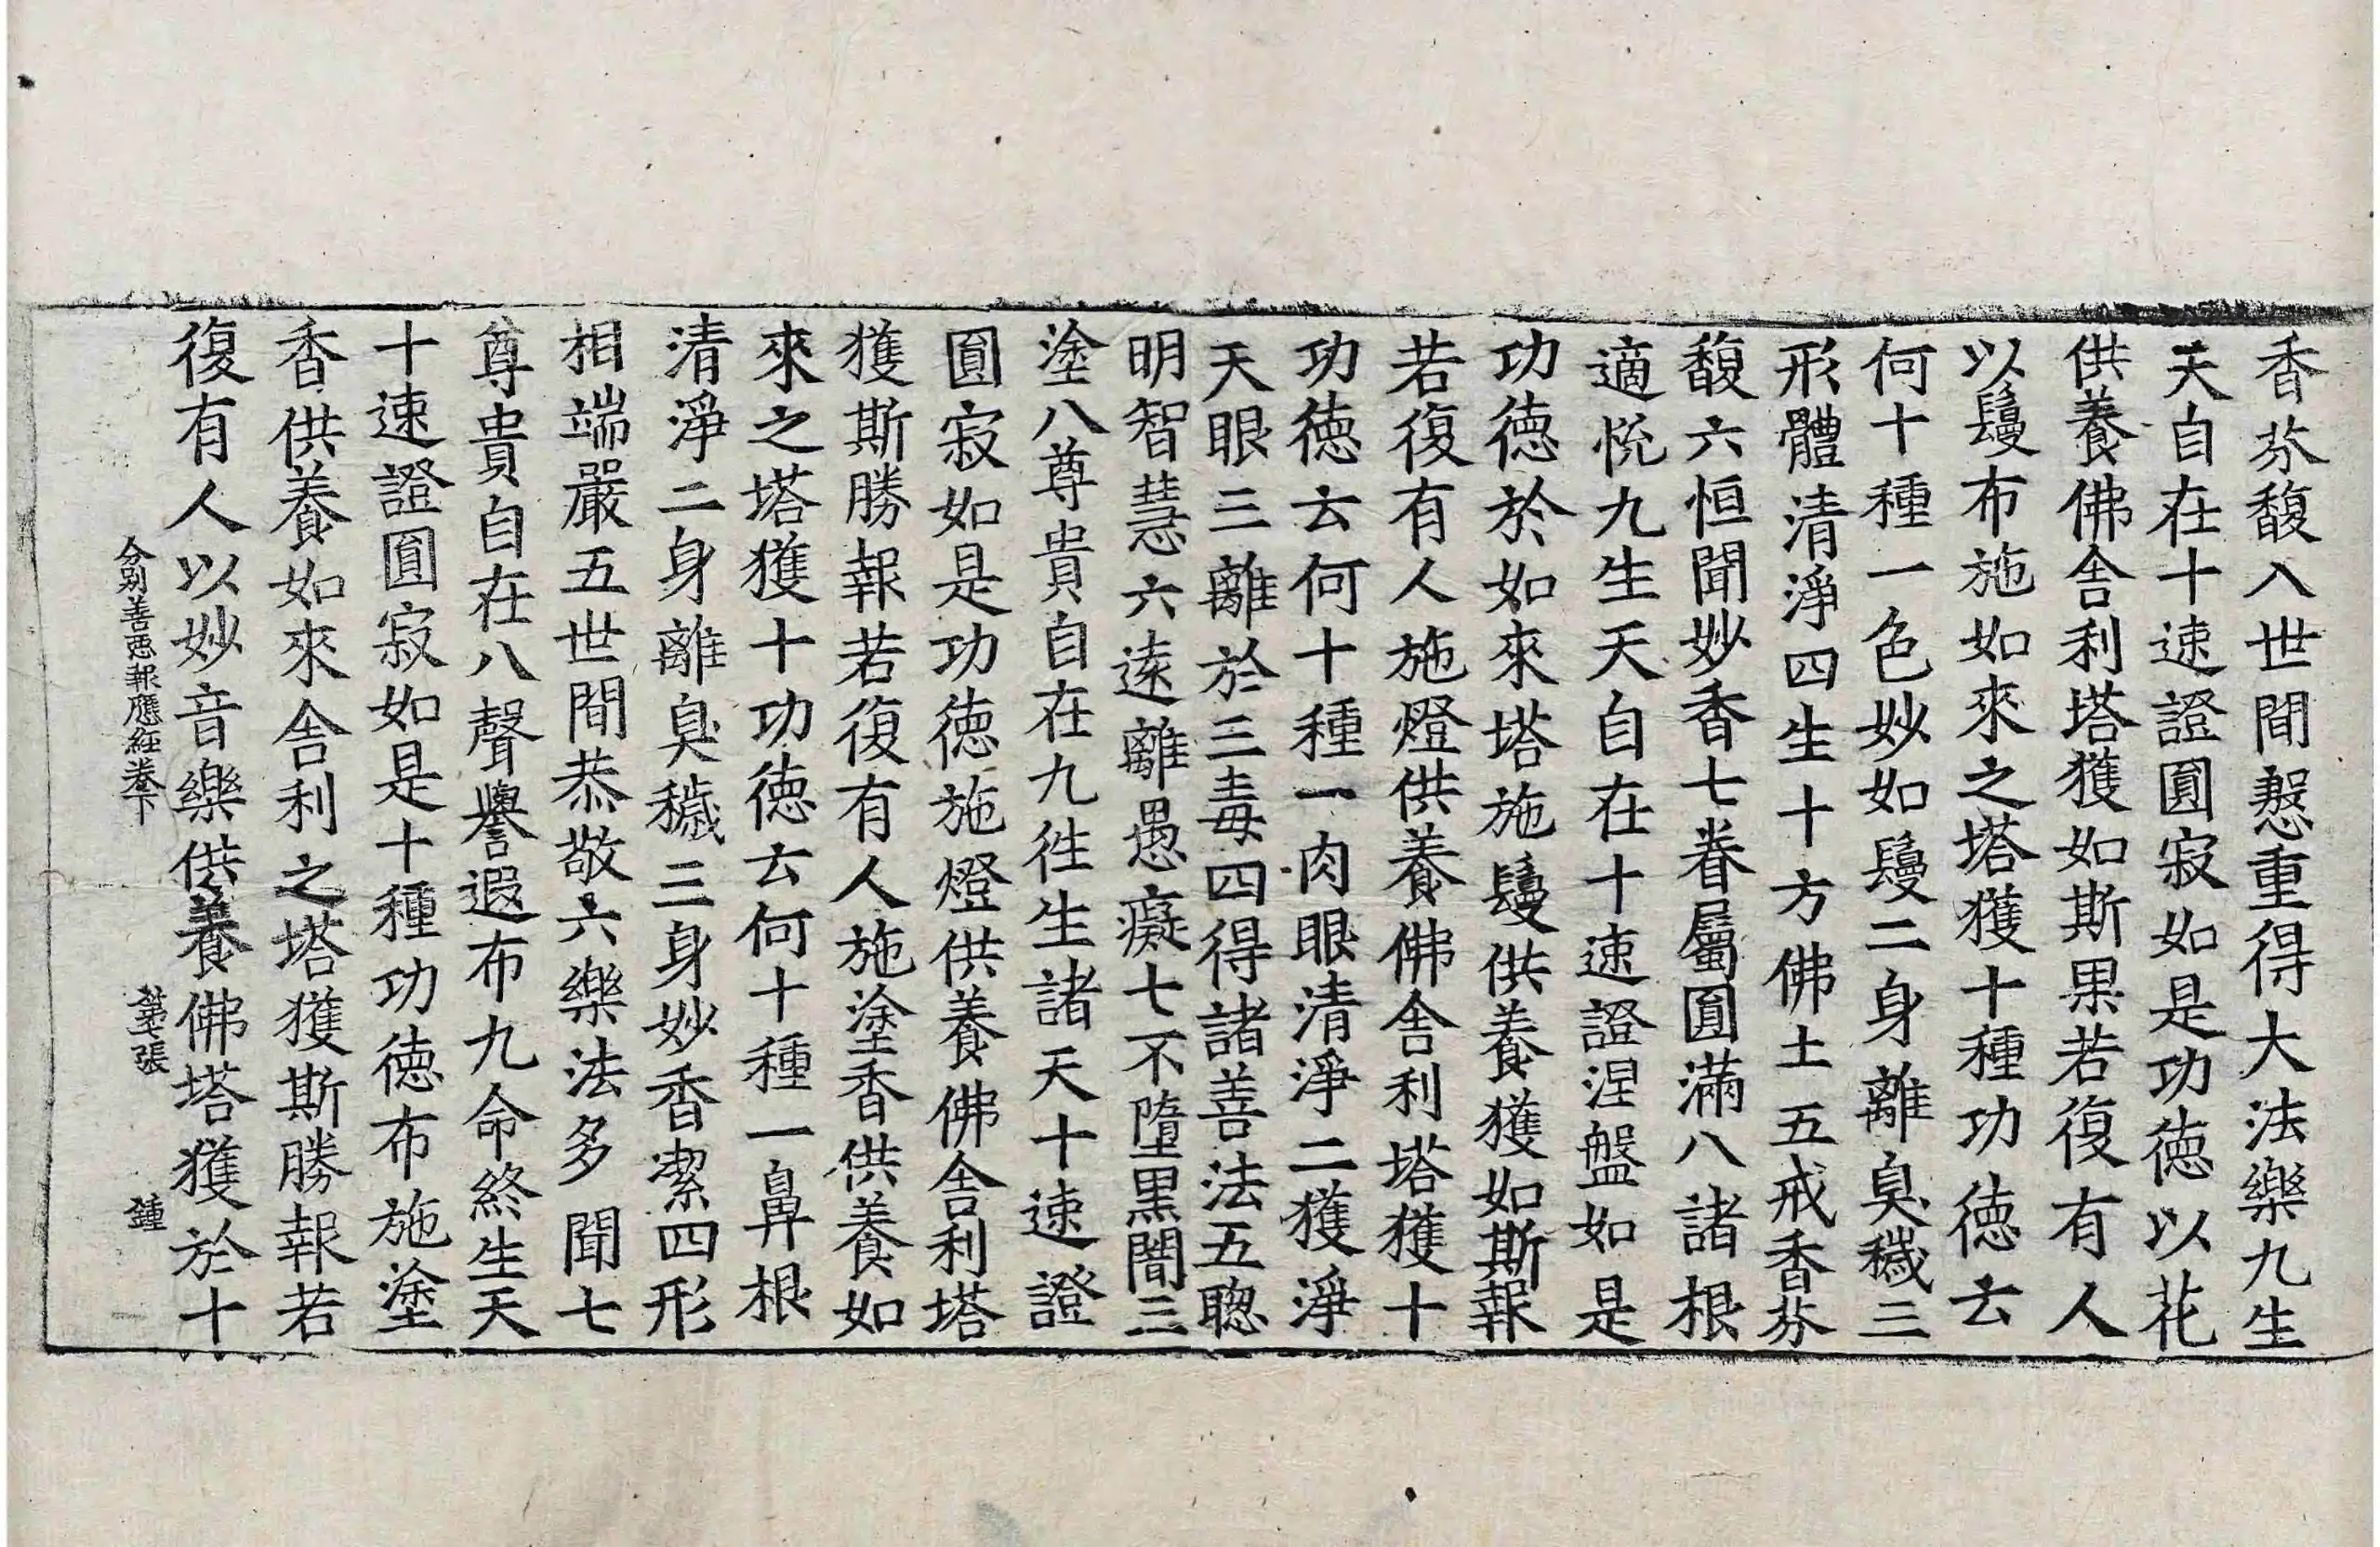 香芬馥八世間慇重得大法樂九生
天自在十速證圓寂如是功徳以花
供養佛舎利塔獲如斯果若復有人
以鬘布施如來之塔獲十種功徳云
何十種一色妙如鬘二身離臭穢三
形體清淨四生十方佛土五戒香芬
馥六恒聞妙香七眷屬圓滿八諸根
適悅九生天自在十速證涅盤如是
功徳於如來塔施鬘供養獲如斯報
若復有人施燈供養佛舎利塔獲十
功徳云何十種一肉眼清淨二獲淨
天眼三離於三毒四得諸善法五聦
明智慧六逺離愚癡七不墮黒闇三
塗八尊貴自在九徃生諸天十速證
圓寂如是功徳施燈供養佛舎利塔
獲斯勝報若復有人施塗香供養如
來之塔獲十功徳云何十種一鼻根
清淨二身離臭穢三身妙香潔四形
相端嚴五世間恭敬六樂法多聞七
尊貴自在八聲譽遐布九命終生天
十速證圓寂如是十種功徳布施塗
香供養如來舎利之塔獲斯勝報若
復有人以妙音樂供養佛塔獲於十
分别善惡報應経卷下 張 鍾